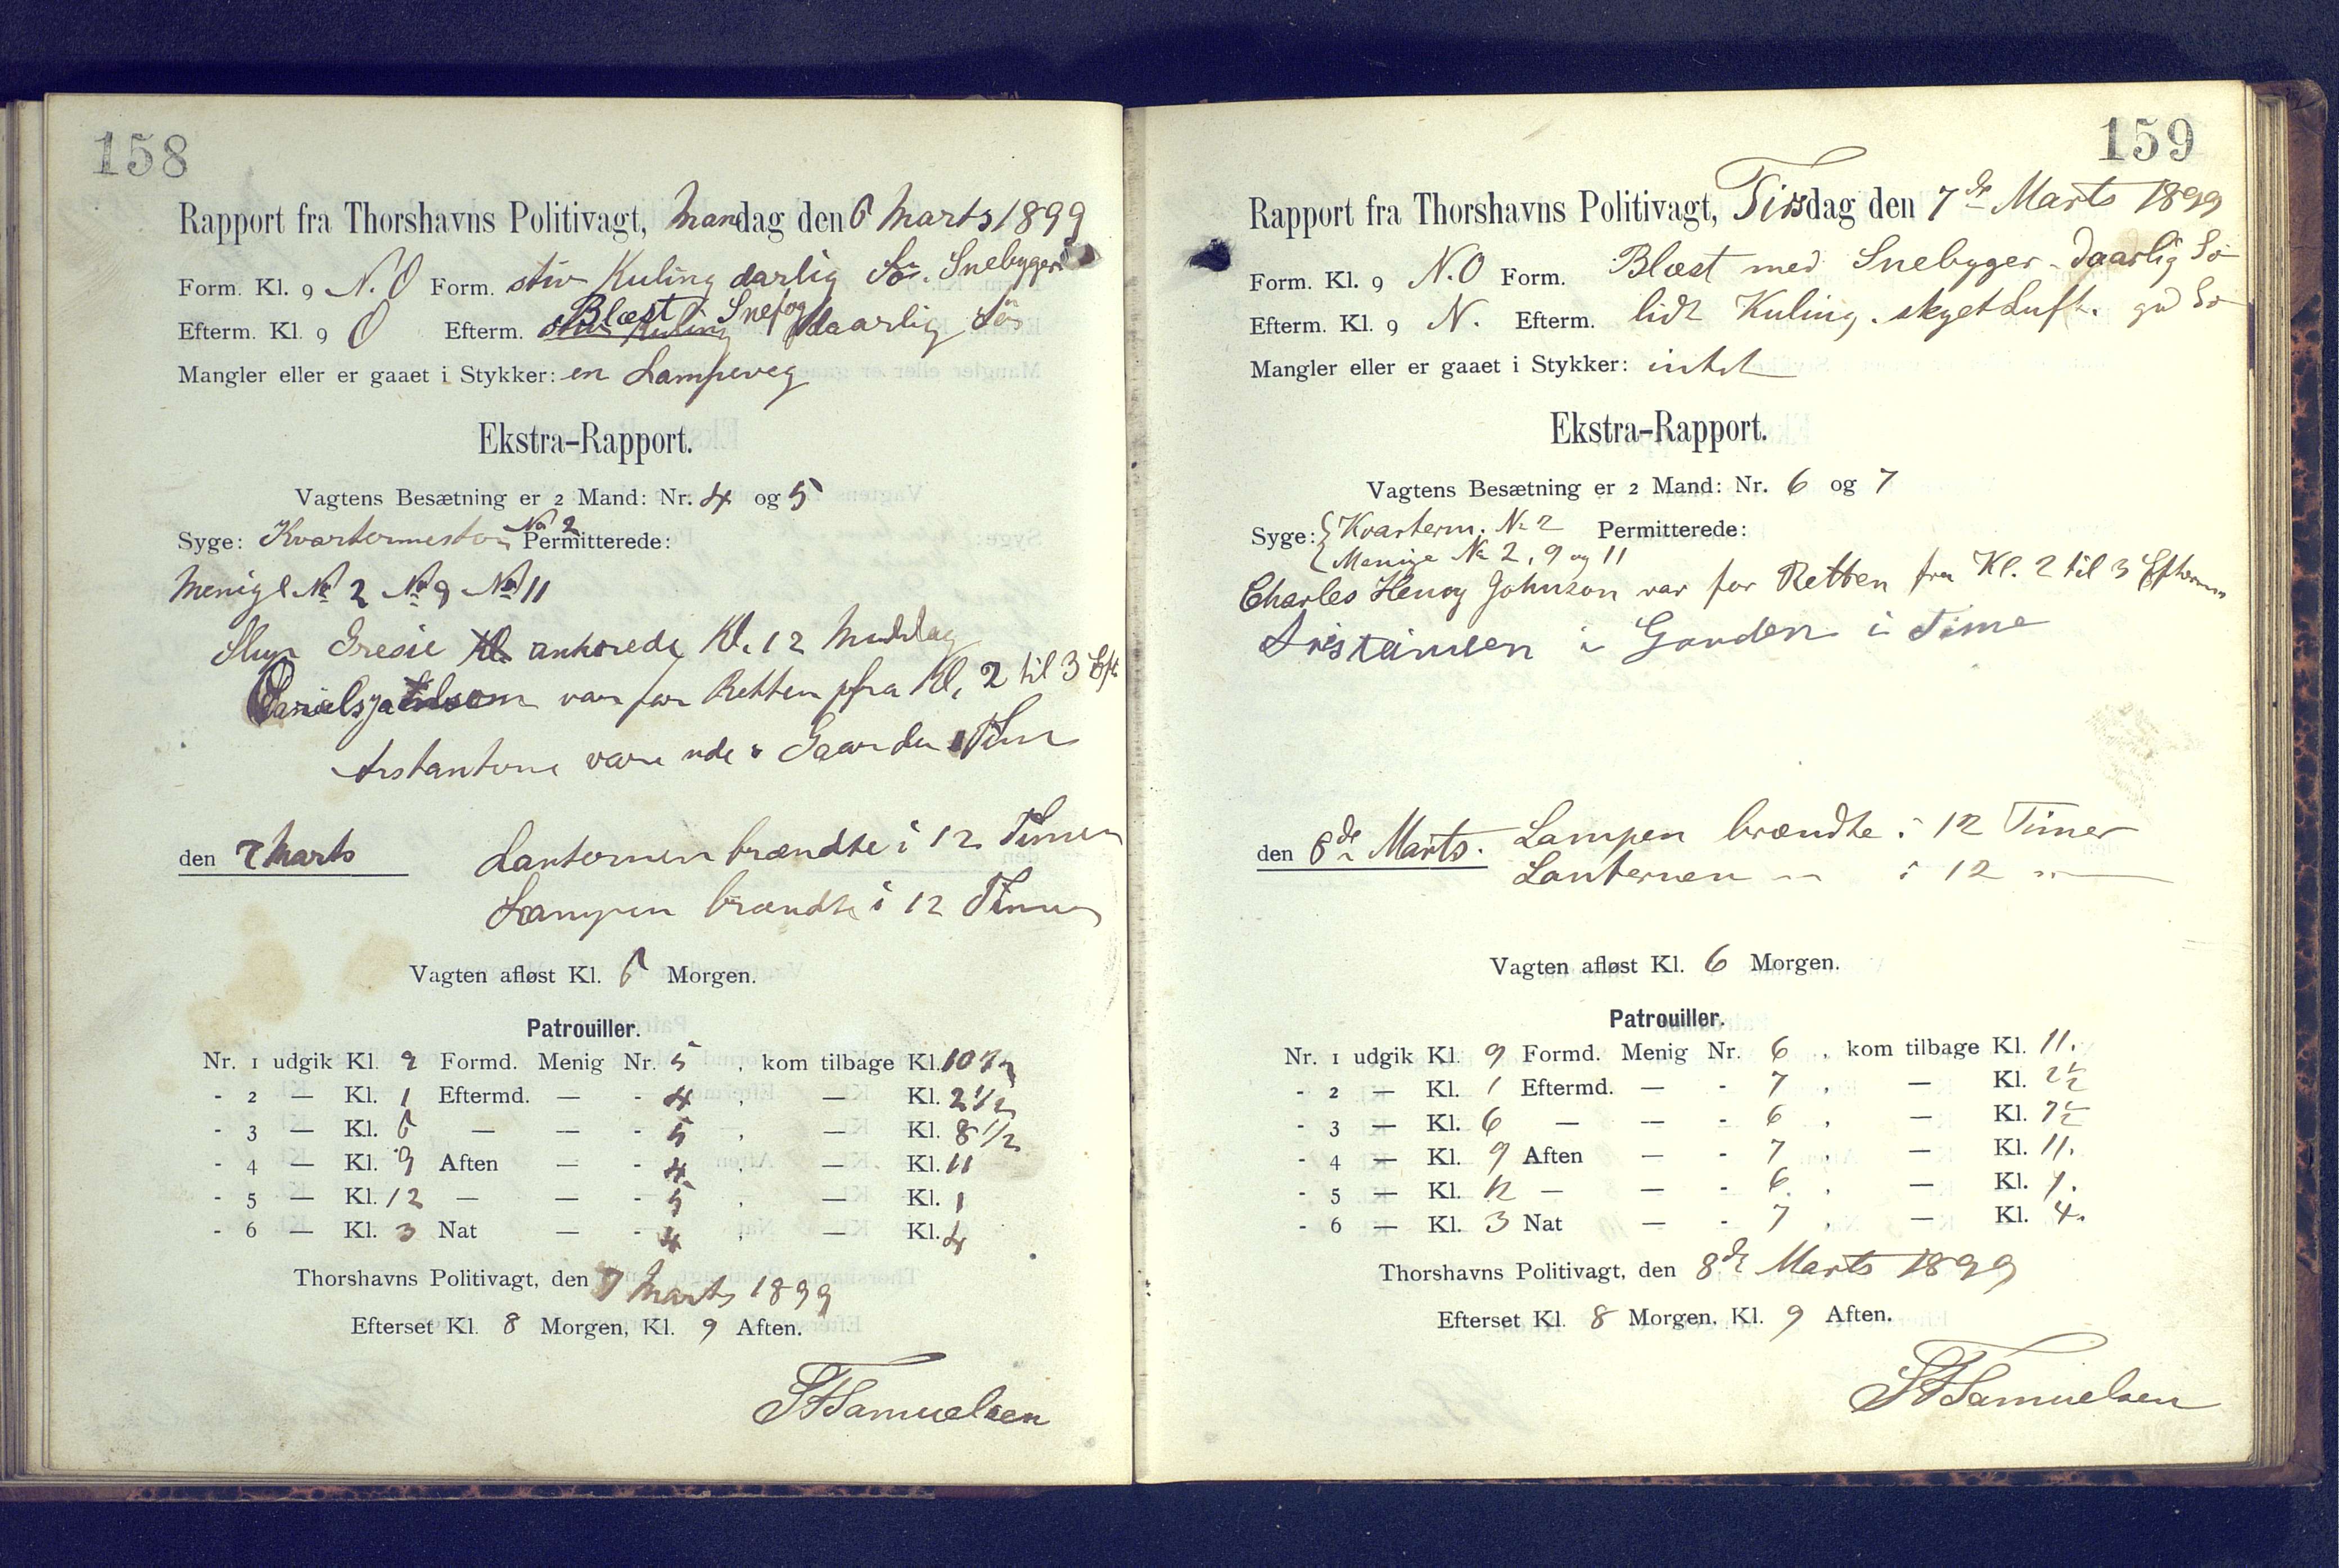 158
Rapport fra Thorshavns Politivagt, Mandag den 6 Marts 1899
Form. Kl. 9 N.O Form. stiv Kuling darlig Sö. Snebyger
Efterm. Kl. 9 O Efterm. stiv Kuling Blæst Snefog daarlig Sö
Mangler eller er gaaet i Stykker: en Lampeveg
Ekstra-Rapport.
Vagtens Besætning er 2 Mand: Nr. 4 og 5
Syge: Kvartermester No 2 Permitterede:
Menige No 2 No 9 No 11
Slup Gresie Kl. ankorede Kl. 12 Middag
var for Retten fra Kl. 2 til 3 Eft
Arstantone vare ude i Gaarden 1 Time
den 7 Marts Lanternen brændte i 12 Timer
Lampen brændte i 12 Timer
Vagten afløst Kl. 6 Morgen.
Patrouiller.
Nr. 1 udgik Kl. 9 Formd. Menig Nr. 5, kom tilbage Kl. 10 1/2
- 2 — Kl. 1 Eftermd. — - 4, — Kl. 2 1/2
- 3 — Kl. 6 — — - 5, — Kl. 8 1/2
- 4 — Kl. 9 Aften — - 4, — Kl. 11
- 5 — Kl. 12 — — - 5, — Kl. 1
- 6 — Kl. 3 Nat — - 4, — Kl. 4
Thorshavns Politivagt, den 7 Marts 1899
Efterset Kl. 8 Morgen, Kl. 9 Aften.
Samuelsen
159
Rapport fra Thorshavns Politivagt, Tirsdag den 7de Marts 1899
Form. Kl. 9 N.O Form. Blæst med Snebyger - daarlig Sö
Efterm. Kl. 9 N. Efterm. lidt Kuling. skyet Luft. god Sö
Mangler eller er gaaet i Stykker: intet
Ekstra-Rapport.
Vagtens Besætning er 2 Mand: Nr. 6 og 7
Syge: Kvarterm. No 2 Permitterede:
Menige No 2, 9 og 11
Charles Henry Johnson var for Retten fra Kl. 2 til 3 Efterm
i Gaarden i Time
den 8de Marts. Lampen brændte i 12 Timer
Lanternen — i 12 —
Vagten afløst Kl. 6 Morgen.
Patrouiller.
Nr. 1 udgik Kl. 9 Formd. Menig Nr. 6, kom tilbage Kl. 11.
- 2 — Kl. 1 Eftermd. — - 7, — Kl. 2 1/2
- 3 — Kl. 6 — — - 6, — Kl. 7 1/2
- 4 — Kl. 9 Aften — - 7, — Kl. 11.
- 5 — Kl. 12 — — - 6, — Kl. 1.
- 6 — Kl. 3 Nat — - 7, — Kl. 4.
Thorshavns Politivagt, den 8de Marts 1899
Efterset Kl. 8 Morgen, Kl. 9 Aften.
Samuelsen